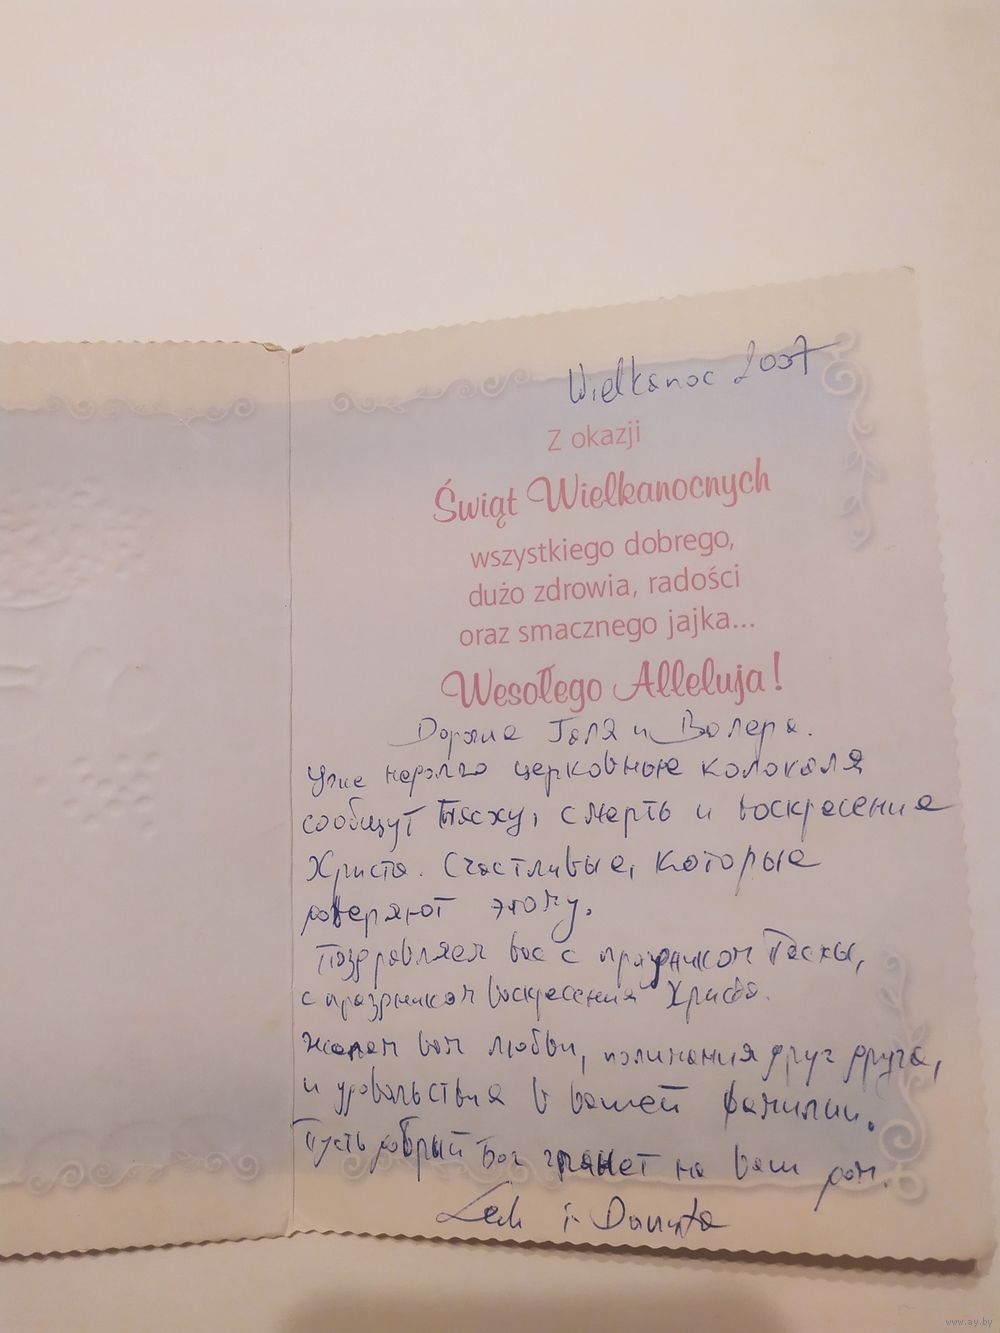 Wielkanoc 2007
Z okazji
Świąt Wielkanocnych
wszystkiego dobrego,
dużo zdrowia, radości
oraz smacznego jajka...
Wesołego Alleluja!
Дорогие Галя и Валера.
Уже недолго церковные колокола
сообщут Пасху, смерть и воскресение
Христа. Счастливые, которые
доверяют этому.
Поздравляем вас с праздником Пасхы,
с праздником воскресения Христа.
Желаем вам любви, понимания друг друга,
и удовольствия в вашей фамилии.
Пусть добрый Бог глянет на ваш дом.
Lech i Danuta
www.ay.by